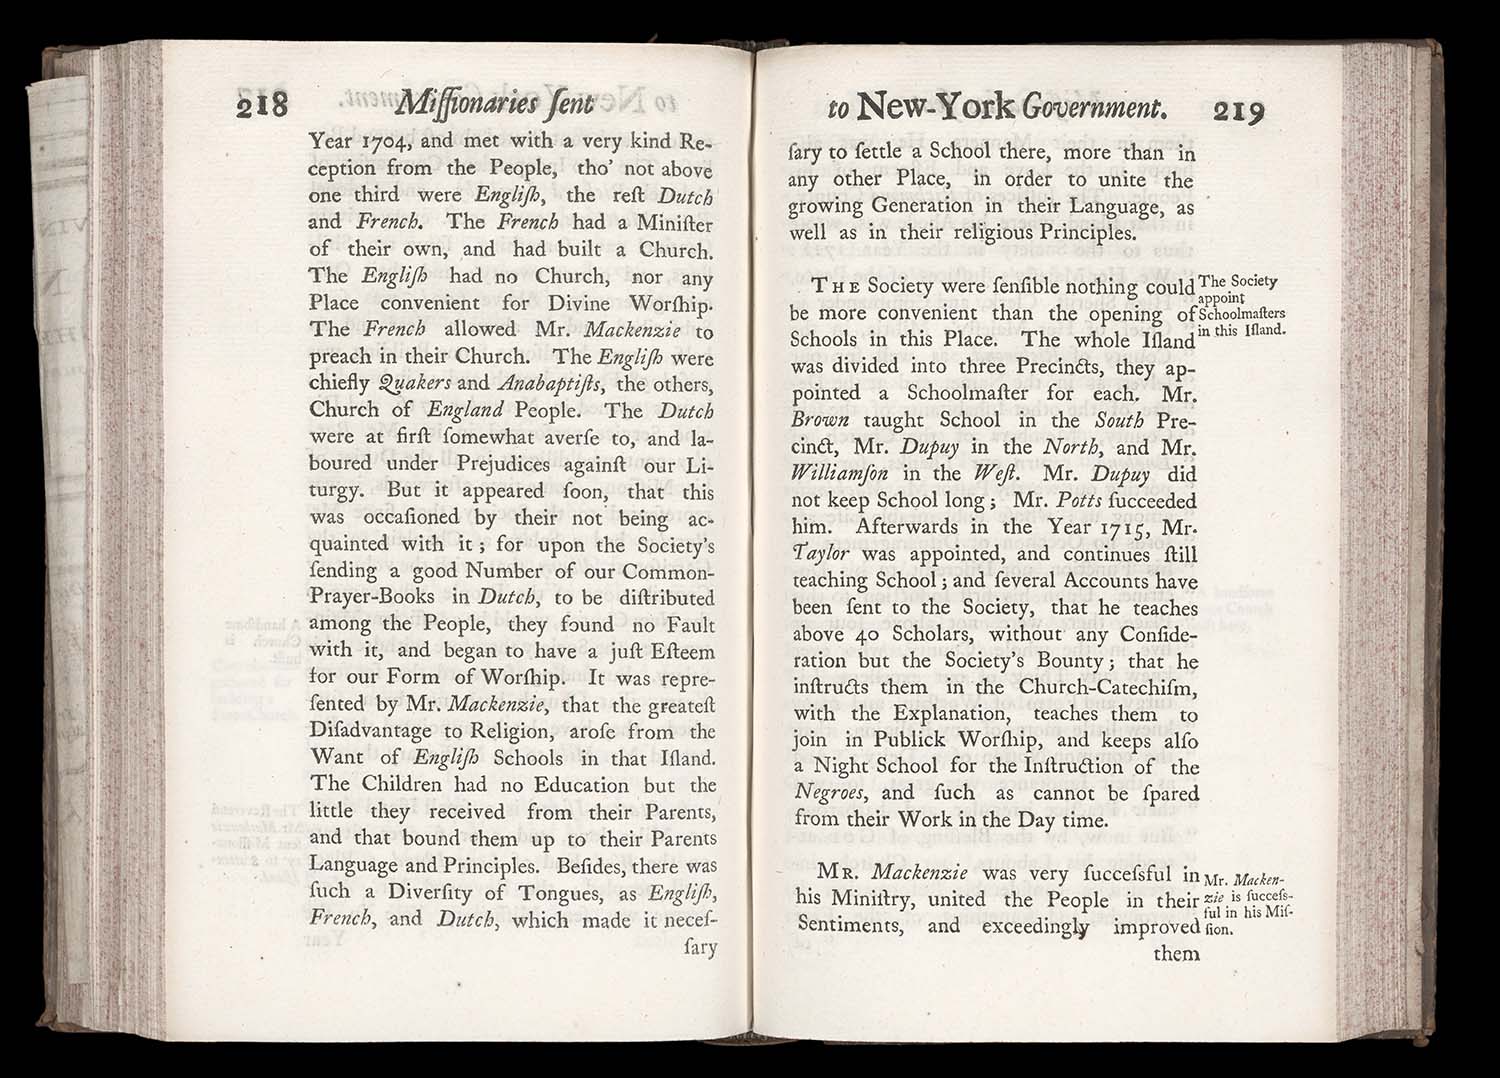 218 Miſſionaries ſent
Year 1704, and met with a very kind Re-
ception from the People, tho' not above
one third were Engliſh, the reſt Dutch
and French. The French had a Miniſter
of their own, and had built a Church.
The Engliſh had no Church, nor any
Place convenient for Divine Worſhip.
The French allowed Mr. Mackenzie to
preach in their Church. The Engliſh were
chiefly Quakers and Anabaptiſts, the others,
Church of England People. The Dutch
were at firſt ſomewhat averſe to, and la-
boured under Prejudices againſt our Li-
turgy. But it appeared ſoon, that this
was occaſioned by their not being ac-
quainted with it; for upon the Society's
ſending a good Number of our Common-
Prayer-Books in Dutch, to be diſtributed
among the People, they found no Fault
with it, and began to have a juſt Eſteem
for our Form of Worſhip. It was repre-
ſented by Mr. Mackenzie, that the greateſt
Diſadvantage to Religion, aroſe from the
Want of Engliſh Schools in that Iſland.
The Children had no Education but the
little they received from their Parents,
and that bound them up to their Parents
Language and Principles. Beſides, there was
ſuch a Diverſity of Tongues, as Engliſh,
French, and Dutch, which made it neceſ-
ſary
to New-York Government. 219
ſary to ſettle a School there, more than in
any other Place, in order to unite the
growing Generation in their Language, as
well as in their religious Principles.
THE Society were ſenſible nothing could
be more convenient than the opening of
Schools in this Place. The whole Iſland
was divided into three Precincts, they ap-
pointed a Schoolmaſter for each. Mr.
Brown taught School in the South Pre-
cinct, Mr. Dupuy in the North, and Mr.
Williamſon in the Weſt. Mr. Dupuy did
not keep School long; Mr. Potts ſucceeded
him. Afterwards in the Year 1715, Mr.
Taylor was appointed, and continues ſtill
teaching School; and ſeveral Accounts have
been ſent to the Society, that he teaches
above 40 Scholars, without any Conſide-
ration but the Society's Bounty; that he
inſtructs them in the Church-Catechiſm,
with the Explanation, teaches them to
join in Publick Worſhip, and keeps alſo
a Night School for the Inſtruction of the
Negroes, and ſuch as cannot be ſpared
from their Work in the Day time.
The Society
appoint
Schoolmaſters
in this Iſland.
MR. Mackenzie was very ſucceſsful in
his Miniſtry, united the People in their
Sentiments, and exceedingly improved
them
Mr. Macken-
zie is ſucceſs-
ful in his Miſ-
ſion.